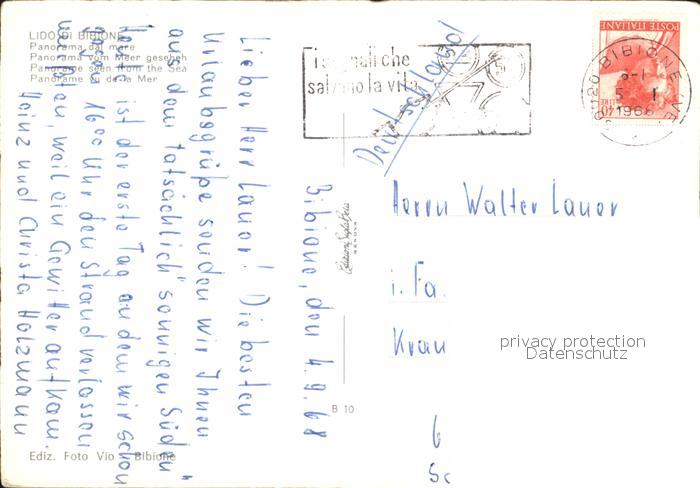 LIDO DI BIBIONE
Panorama dal mare
Panorama vom Meer gesehen
Panorama seen from the Sea
Panorame vu de la Mer
Bibione, den 4.9.68
Lieber Herr Lauer! Die besten
Urlaubsgrüße senden wir Ihnen
aus dem "tatsächlich" sonnigen Süden
Heute ist der erste Tag an dem wir schon
gegen 16 00 Uhr den Strand verlassen
mußten, weil ein Gewitter aufkam.
Heinz und Christa Holzmann
Ediz. Foto Vio - Bibione
B 10
i segnali che
salvano la vita
POSTE ITALIANE
LIRE 40
30020 BIBIONE (VE)
1968
Deutschland
Herrn Walter Lauer
i. Fa.
Krau
6
Sc
privacy protection
Datenschutz